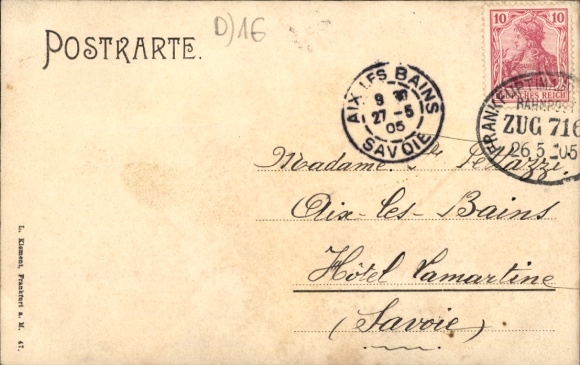 D)16
POSTKARTE.
10 10
DEUTSCHES REICH
FRANKFURT
BAHNPOST
ZUG 716
26 5 05
AIX LES BAINS
27 - 5
05
SAVOIE
Madame
Aix-les-Bains
Hôtel Lamartine
(Savoie)
L. Klement, Frankfurt a. M. 47.